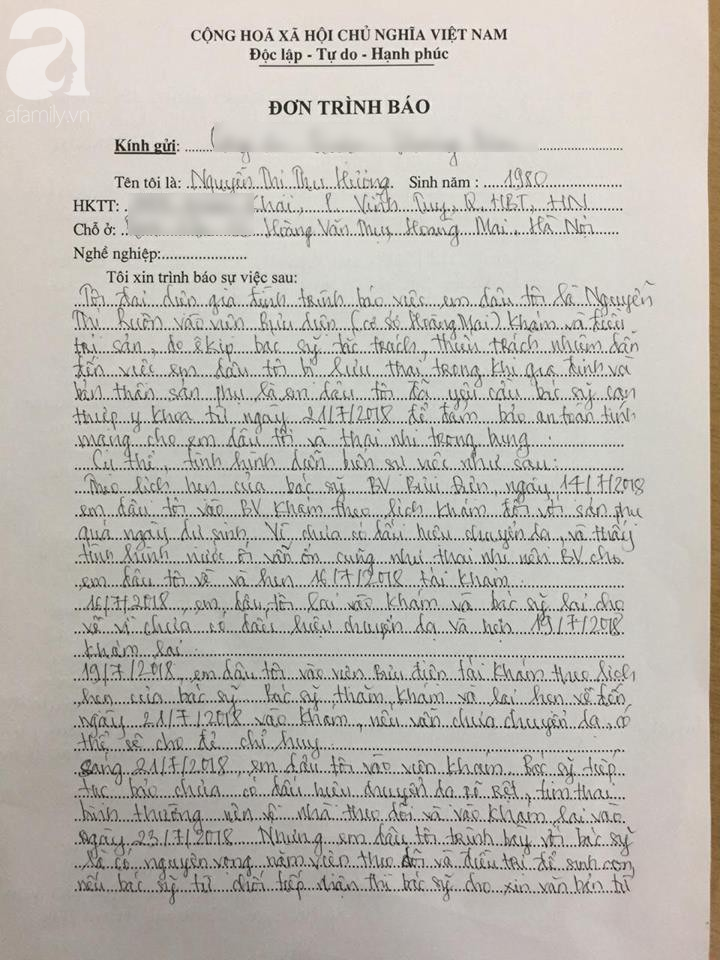 afamily.vn
CỘNG HOÀ XÃ HỘI CHỦ NGHĨA VIỆT NAM
Độc lập - Tự do - Hạnh phúc
ĐƠN TRÌNH BÁO
Kính gửi:
Tên tôi là: Nguyễn Thị Thu Hường. Sinh năm: 1980
HKTT: Khai, P. Vĩnh Tuy, Q. HBT, HN
Chỗ ở: Hoàng Văn Thụ, Hoàng Mai, Hà Nội
Nghề nghiệp:
Tôi xin trình báo sự việc sau:
Tôi đại diện gia đình trình báo việc em dâu tôi là Nguyễn
Thị vào viện Bưu điện (cơ sở Hoàng Mai) khám và điều
trị sản, do êkip bác sỹ tắc trách, thiếu trách nhiệm dẫn
đến việc em dâu tôi bị lưu thai trong khi gia đình và
bản thân sản phụ là em dâu tôi đã yêu cầu bác sỹ can
thiệp y khoa từ ngày 21/7/2018 để đảm bảo an toàn tính
mạng cho em dâu tôi và thai nhi trong bụng.
Cụ thể, tình hình diễn biến sự việc như sau:
Theo lịch hẹn của bác sỹ BV Bưu Điện, ngày 14/7/2018
em dâu tôi vào BV khám theo lịch khám đối với sản phụ
quá ngày dự sinh. Vì chưa có dấu hiệu chuyển dạ, và thấy
tình hình nước ối vẫn ổn cũng như thai nhi nên BV cho
em dâu tôi về và hẹn 16/7/2018 tái khám.
16/7/2018, em dâu tôi lại vào khám và bác sỹ lại cho
về vì chưa có dấu hiệu chuyển dạ và hẹn 19/7/2018
khám lại.
19/7/2018, em dâu tôi vào viện Bưu điện tái khám theo lịch
hẹn của bác sỹ. Bác sỹ thăm khám và lại hẹn về đến
ngày 21/7/2018 vào khám, nếu vẫn chưa chuyển dạ, có
thể sẽ cho đẻ chỉ huy.
Sáng 21/7/2018, em dâu tôi vào viện khám. Bác sỹ tiếp
tục bảo chưa có dấu hiệu chuyển dạ rõ rệt, tim thai
bình thường nên về nhà theo dõi và vào khám lại vào
ngày 23/7/2018. Nhưng em dâu tôi trình bày với bác sỹ
là có nguyện vọng nằm viện theo dõi và điều trị để sinh con,
nếu bác sỹ từ chối tiếp nhận thì bác sỹ cho xin văn bản từ